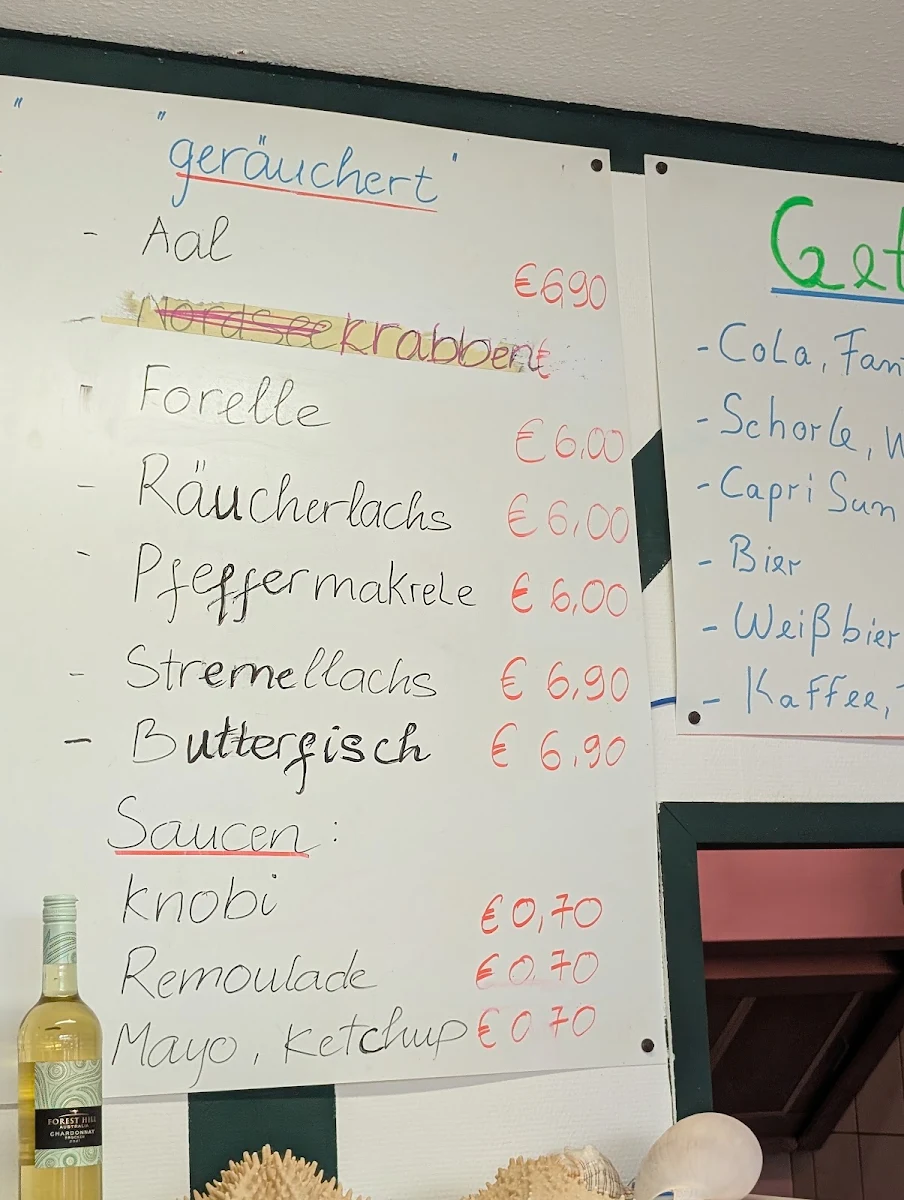 "geräuchert"
- Aal € 6,90
- Nordseekrabben €
- Forelle € 6,00
- Räucherlachs € 6,00
- Pfeffermakrele € 6,00
- Stremellachs € 6,90
- Butterfisch € 6,90
Saucen:
Knobi € 0,70
Remoulade € 0,70
Mayo, Ketchup € 0,70
Get
- Cola, Fan
- Schorle, W
- Capri Sun
- Bier
- Weißbier
- Kaffee,
FOREST HILL
AUSTRALIA
CHARDONNAY